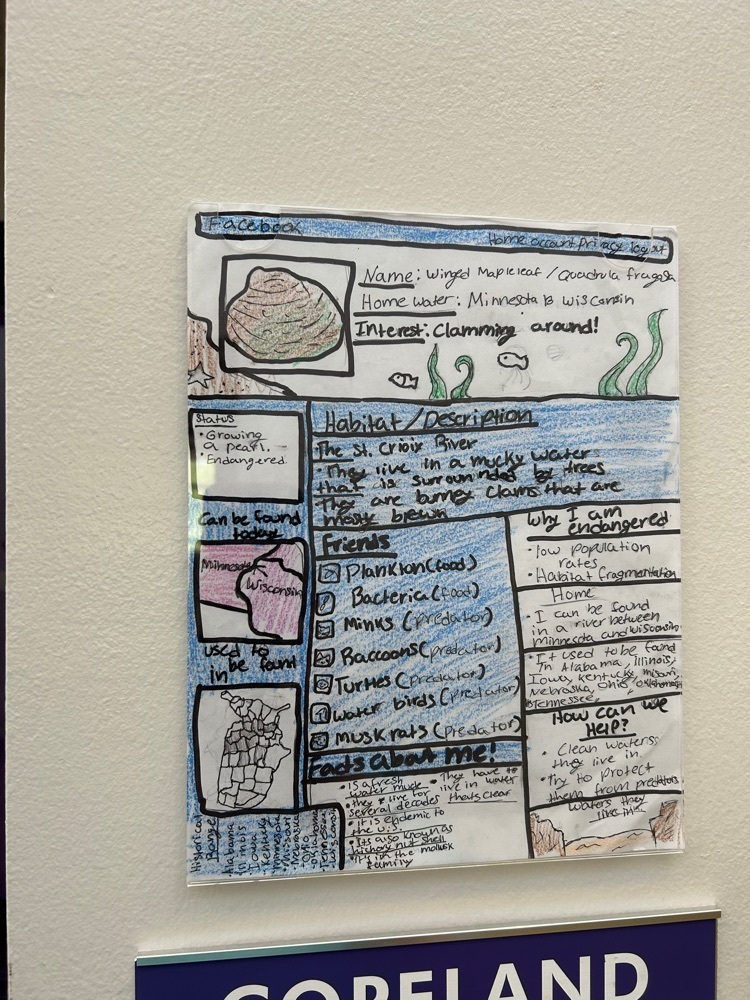 Facebook
Home account privacy log out
Name: Winged Mapleleaf / Quadrula fragosa
Home water: Minnesota & Wisconsin
Interest: Clamming around!
Status
• Growing
a pearl.
• Endangered
Can be found
today
Minnesota
Wisconsin
used to
be found
in
Historical
Range
Alabama
Illinois
Iowa
Kentucky
Minnesota
Missouri
Nebraska
Ohio
Oklahoma
Tennessee
Wisconsin
Habitat/Description
The St. Croix River
• They live in a mucky water
that is surrounded by trees
They are bumpy clams that are
mostly brown
Friends
Plankton (food)
Bacteria (food)
Minks (predator)
Raccoons (predator)
Turtles (predator)
Water birds (predator)
Muskrats (predator)
Facts about me!
• Is a fresh
water
• they live for
several decades
• It is epdemic to
the U.S.
• Its also known as
hickory nut shell
• It's in the mollusk
family
• They have to
live in water
thats clear
Why I am
endangered
• low population
rates
• Habitat fragmentation
Home
• I can be found
in a river between
Minnesota and Wisconsin
• I used to be found
In Alabama, Illinois,
Iowa, Kentucky, Missuri,
Nebraska, Ohio, Oklahoma
Tennessee,
How can we
Help?
• Clean waters
they live in
• Try to protect
them from preditors
Waters they
live in
COPELAND